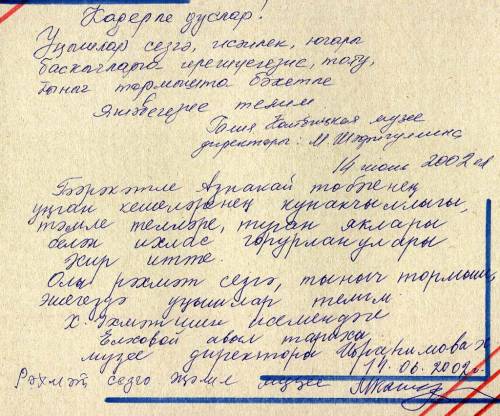 Кадерле дуслар!
Уңышлар сезгә, исәнлек, югары
баскычларга ирешүегезне, тату,
тыныч тормышта бәхетле
яшәвегезне телим.
Галия Кайбицкая музее
директоры: М. Шәфигуллина
14 июнь 2002 ел
Бәрәкәтле Азнакай төбәгенең
уңган кешеләренең кунакчыллыгы,
тәмле телләре, туган яклары
белән ихлас горурланулары
әсир итте.
Олы рәхмәт сезгә, тыныч тормыш,
эшегездә уңышлар телим.
Х. Әхмәтишин исемендәге
Елховой авыл тарихи
музее директоры Ибраһимова Х
14.06.2002.
Рәхмәт сезгә җәмлe музее